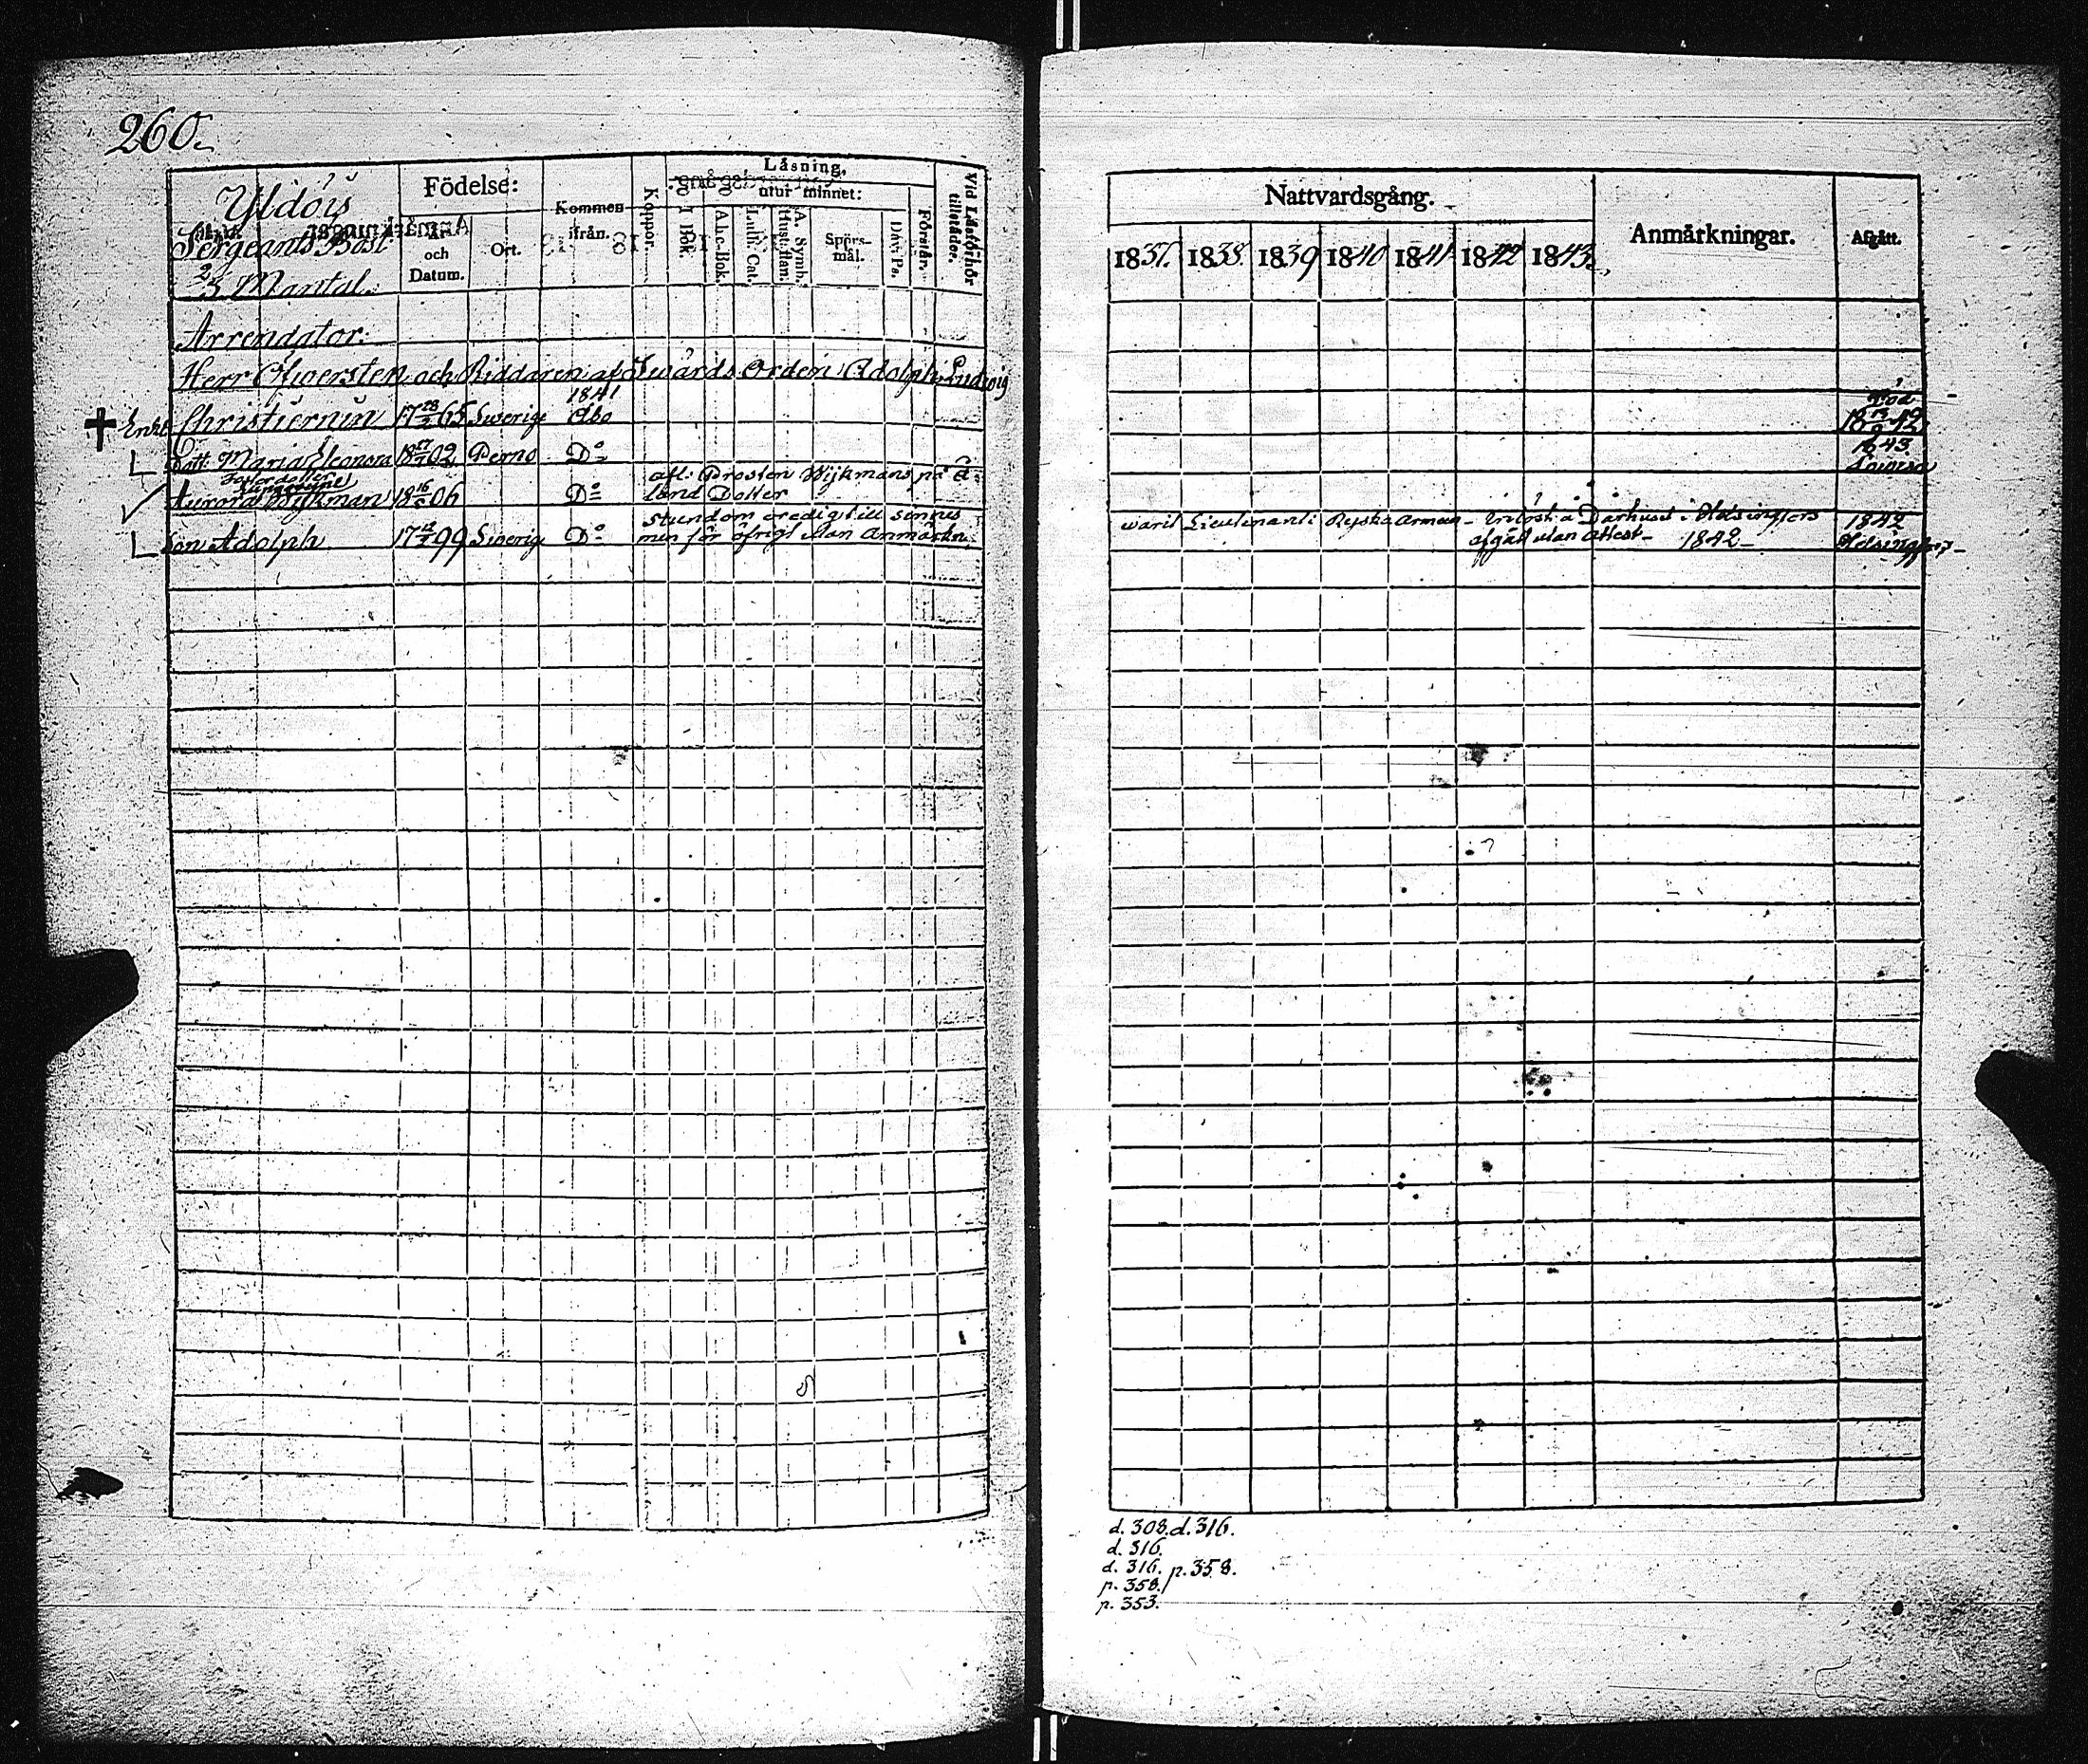 260.
Yldöis
Sergeants Bost:
2/3 Mantal.
Födelse:
År och Datum.
Ort.
Kommen ifrån.
Koppor.
Läsning,
I Bok.
utur minnet:
A.bc-Bok.
Luth. Cat.
Hust. flan.
A. Symb.
Spörs-mål.
Dav. Ps.
Förstår.
Vid Läsförhör tillstädes.
Nattvardsgång.
1837. 1838 1839 1840 1841 1842 1843
Anmärkningar.
Afgått.
Arrendator:
Herr Öfwersten och Riddaren af Swärds Orden Adolph Ludvig
1841
Enkl. Christiernin 17 28/2 65 Swerige Åbo död 18 12/9 42
Dott: Maria Eleonora 18 02 Perno Do 1843 Lowisa
Aurora Wijkman 18 16 06 Do afl: Prosten Wijkmans på Åland Dotter
Son Adolph 17 12 99 Swerige Do Stundom oredig till sinnes men för öfrigt utan Anmärkn.
warit Lieutenant i Ryska Armeen - å Dårhuset i Helsingfors 1842
afgått utan attest - 1842 - Helsingfors -
d. 308. d. 316.
d. 316.
d. 316. p. 358.
p. 358.
p. 353.